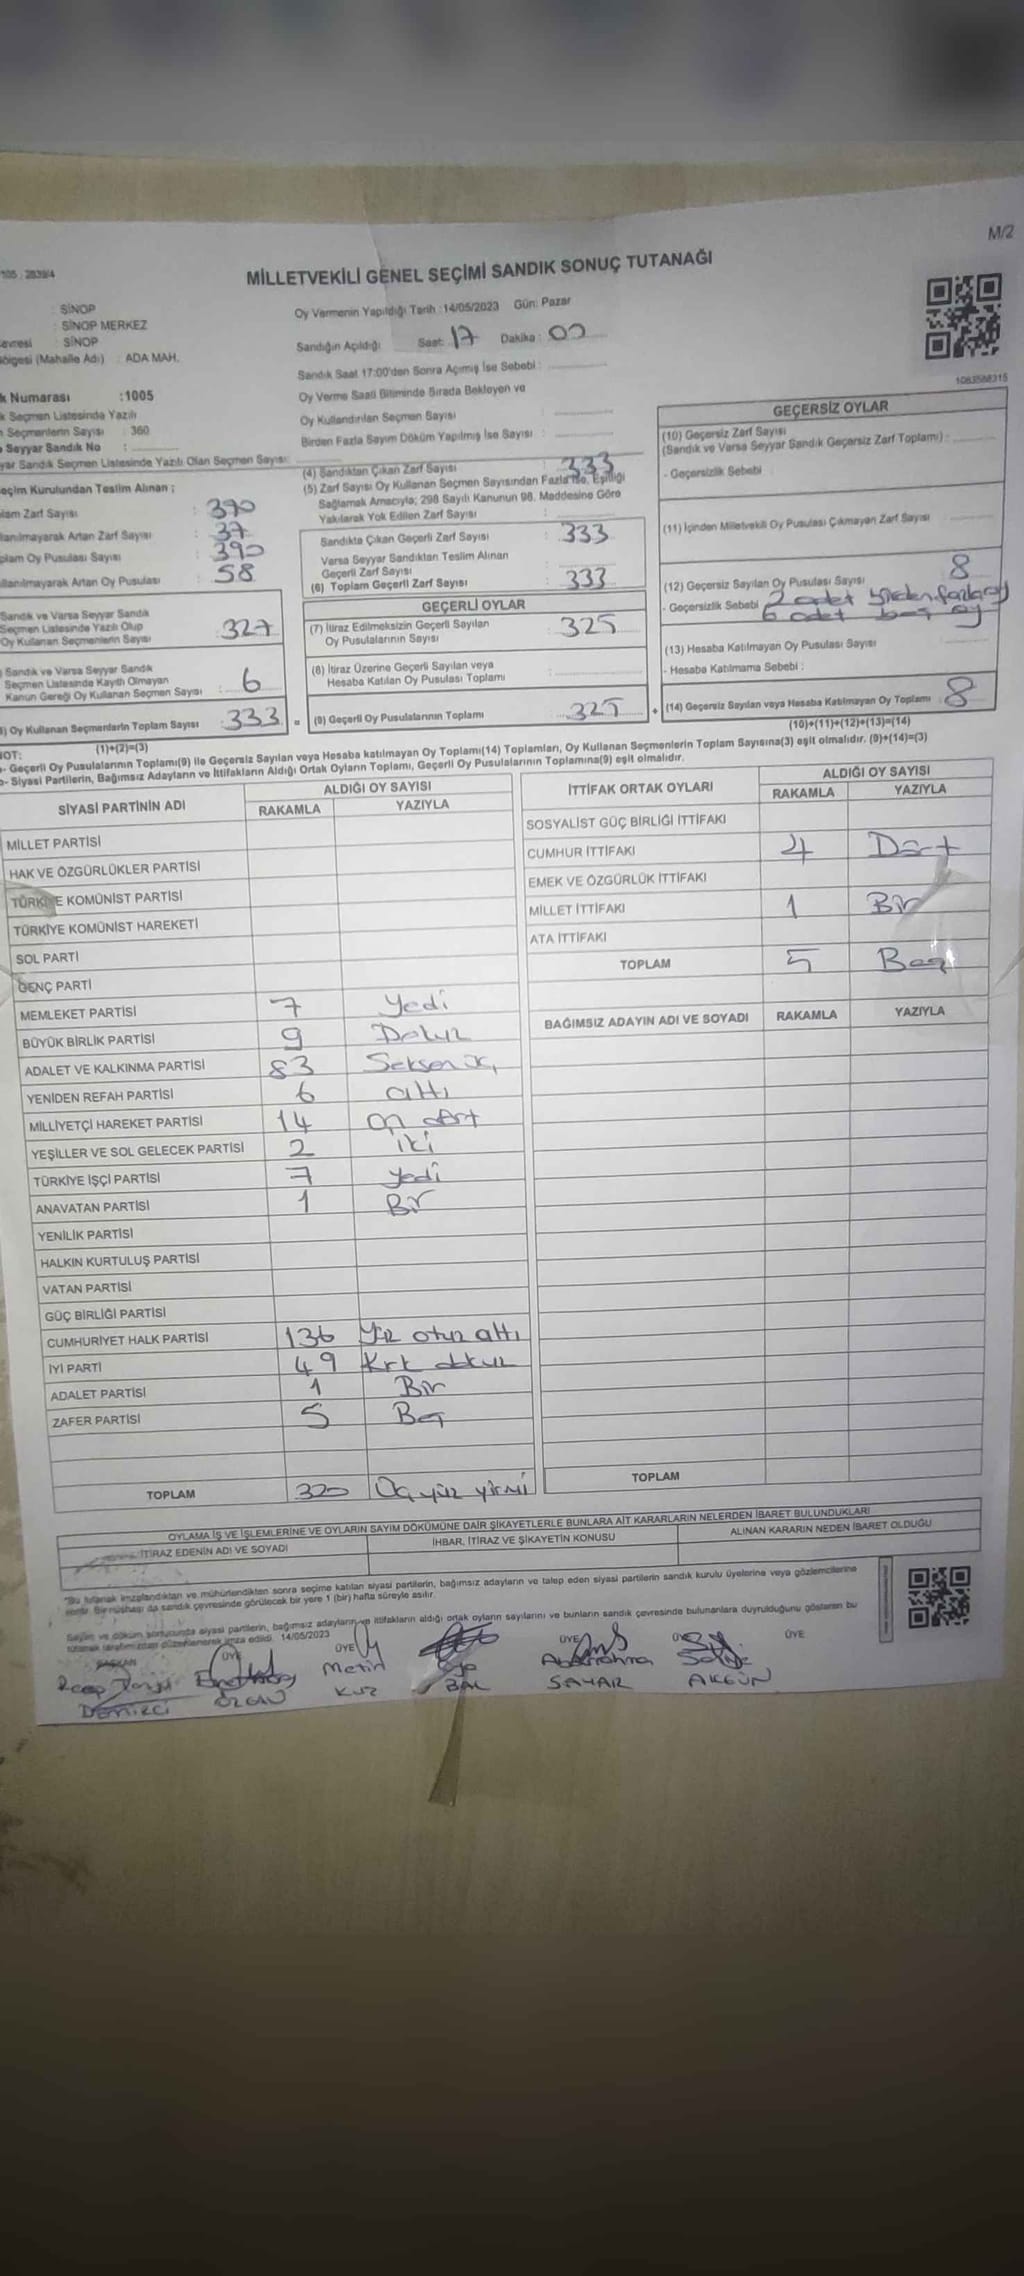 M/2
MİLLETVEKİLİ GENEL SEÇİMİ SANDIK SONUÇ TUTANAĞI
: SİNOP
: SİNOP MERKEZ
: SİNOP
(Mahalle Adı) : ADA MAH.
Numarası : 1005
Seçmen Listesinde Yazılı
Seçmenlerin Sayısı : 360
Seyyar Sandık No :
Sandık Seçmen Listesinde Yazılı Olan Seçmen Sayısı:
Oy Vermenin Yapıldığı Tarih :14/05/2023 Gün: Pazar
Sandığın Açıldığı Saat: 17 Dakika: 00
Sandık Saat 17:00'den Sonra Açımış İse Sebebi :
Oy Verme Saati Bitiminde Sırada Bekleyen ve
Oy Kullandırılan Seçmen Sayısı :
Birden Fazla Sayım Döküm Yapılmış İse Sayısı :
1083588315
Seçim Kurulundan Teslim Alınan ;
Zarf Sayısı : 390
Artan Zarf Sayısı : 37
Oy Pusulası Sayısı : 390
Artan Oy Pusulası : 58
Sandık ve Varsa Seyyar Sandık
Seçmen Listesinde Yazılı Olup
Oy Kullanan Seçmenlerin Sayısı : 327
Sandık ve Varsa Seyyar Sandık
Seçmen Listesinde Kayıtlı Olmayan
Kanun Gereği Oy Kullanan Seçmen Sayısı : 6
Oy Kullanan Seçmenlerin Toplam Sayısı : 333 =
(1)+(2)=(3)
(4) Sandıktan Çıkan Zarf Sayısı : 333
(5) Zarf Sayısı Oy Kullanan Seçmen Sayısından Fazla İse, Eşitliği
Sağlamak Amacıyla; 298 Sayılı Kanunun 98. Maddesine Göre
Yakılarak Yok Edilen Zarf Sayısı :
Sandıkta Çıkan Geçerli Zarf Sayısı : 333
Varsa Seyyar Sandıktan Teslim Alınan
Geçerli Zarf Sayısı :
(6) Toplam Geçerli Zarf Sayısı : 333
GEÇERLİ OYLAR
(7) İtiraz Edilmeksizin Geçerli Sayılan
Oy Pusulalarının Sayısı : 325
(8) İtiraz Üzerine Geçerli Sayılan veya
Hesaba Katılan Oy Pusulası Toplamı :
(9) Geçerli Oy Pusulalarının Toplamı : 325 +
GEÇERSİZ OYLAR
(10) Geçersiz Zarf Sayısı
(Sandık ve Varsa Seyyar Sandık Geçersiz Zarf Toplamı) :
- Geçersizlik Sebebi :
(11) İçinden Milletvekili Oy Pusulası Çıkmayan Zarf Sayısı :
(12) Geçersiz Sayılan Oy Pusulası Sayısı : 8
- Geçersizlik Sebebi : 2 adet birden fazla oy
6 adet boş oy
(13) Hesaba Katılmayan Oy Pusulası Sayısı :
- Hesaba Katılmama Sebebi :
(14) Geçersiz Sayılan veya Hesaba Katılmayan Oy Toplamı : 8
(10)+(11)+(12)+(13)=(14)
NOT:
- Geçerli Oy Pusulalarının Toplamı(9) ile Geçersiz Sayılan veya Hesaba katılmayan Oy Toplamı(14) Toplamları, Oy Kullanan Seçmenlerin Toplam Sayısına(3) eşit olmalıdır. (9)+(14)=(3)
- Siyasi Partilerin, Bağımsız Adayların ve İttifakların Aldığı Ortak Oyların Toplamı, Geçerli Oy Pusulalarının Toplamına(9) eşit olmalıdır.
SİYASİ PARTİNİN ADI ALDIĞI OY SAYISI
RAKAMLA YAZIYLA
MİLLET PARTİSİ
HAK VE ÖZGÜRLÜKLER PARTİSİ
TÜRKİYE KOMÜNİST PARTİSİ
TÜRKİYE KOMÜNİST HAREKETİ
SOL PARTİ
GENÇ PARTİ
MEMLEKET PARTİSİ 7 Yedi
BÜYÜK BİRLİK PARTİSİ 9 Dokuz
ADALET VE KALKINMA PARTİSİ 83 Seksen üç
YENİDEN REFAH PARTİSİ 6 altı
MİLLİYETÇİ HAREKET PARTİSİ 14 on dört
YEŞİLLER VE SOL GELECEK PARTİSİ 2 iki
TÜRKİYE İŞÇİ PARTİSİ 7 yedi
ANAVATAN PARTİSİ 1 Bir
YENİLİK PARTİSİ
HALKIN KURTULUŞ PARTİSİ
VATAN PARTİSİ
GÜÇ BİRLİĞİ PARTİSİ
CUMHURİYET HALK PARTİSİ 136 Yüz otuz altı
İYİ PARTİ 49 Kırk dokuz
ADALET PARTİSİ 1 Bir
ZAFER PARTİSİ 5 Beş
TOPLAM 320 Üç yüz yirmi
İTTİFAK ORTAK OYLARI ALDIĞI OY SAYISI
RAKAMLA YAZIYLA
SOSYALİST GÜÇ BİRLİĞİ İTTİFAKI
CUMHUR İTTİFAKI 4 Dört
EMEK VE ÖZGÜRLÜK İTTİFAKI
MİLLET İTTİFAKI 1 Bir
ATA İTTİFAKI
TOPLAM 5 Beş
BAĞIMSIZ ADAYIN ADI VE SOYADI RAKAMLA YAZIYLA
TOPLAM
OYLAMA İŞ VE İŞLEMLERİNE VE OYLARIN SAYIM DÖKÜMÜNE DAİR ŞİKAYETLERLE BUNLARA AİT KARARLARIN NELERDEN İBARET BULUNDUKLARI
İTİRAZ EDENİN ADI VE SOYADI İHBAR, İTİRAZ VE ŞİKAYETİN KONUSU ALINAN KARARIN NEDEN İBARET OLDUĞU
"Bu tutanak imzalandıktan ve mühürlendikten sonra seçime katılan siyasi partilerin, bağımsız adayların ve talep eden siyasi partilerin sandık kurulu üyelerine veya gözlemcilerine
verilir. Bir nüshası da sandık çevresinde görülecek bir yere 1 (bir) hafta süreyle asılır.
Sayım ve döküm sonucunda siyasi partilerin, bağımsız adayların ve ittifakların aldığı ortak oyların sayılarını ve bunların sandık çevresinde bulunanlara duyrulduğunu gösteren bu
tutanak tarafımızdan düzenlenerek imza edildi. 14/05/2023
BAŞKAN ÜYE ÜYE ÜYE ÜYE ÜYE
Recep Demirci
ÖZCAN
Metin KUZ
BAL
SAYAR
AKGÜN